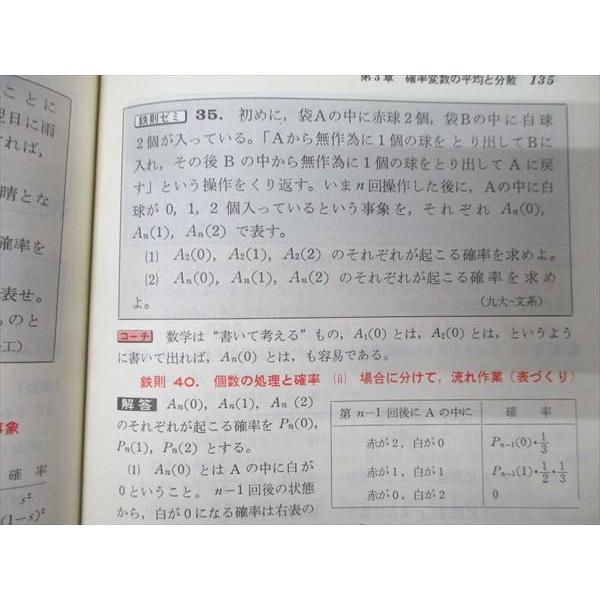 第3章 確率変数の平均と分散 135
ことに
翌日に雨
ければ,
晴とな
確率を
表せ。
のと
工)
事象
確 率
s²
(1-s)²
鉄則ゼミ 35. 初めに, 袋Aの中に赤球2個, 袋Bの中に白球
2個が入っている。「Aから無作為に1個の球をとり出してBに
入れ, その後Bの中から無作為に1個の球をとり出してAに戻
す」という操作をくり返す。いまn回操作した後に, Aの中に白
球が 0, 1, 2 個入っているという事象を, それぞれ An(0),
An(1), An(2) で表す。
(1) A2(0), A2(1), A2(2) のそれぞれが起こる確率を求めよ。
(2) An(0), An(1), An(2) のそれぞれが起こる確率を求め
よ。 (九大-文系)
コーチ 数学は“書いて考える”もの, A1(0) とは, A2(0) とは, というよう
に書いて出れば, An(0) とは, も容易である。
鉄則 40. 個数の処理と確率 (ii) 場合に分けて, 流れ作業(表づくり)
解答 An(0), An(1), An (2)
のそれぞれが起こる確率を Pn(0),
Pn(1), Pn(2) とする。
(1) An(0) とは A の中に白が
0ということ。 n-1回後の状態
から, 白が0になる確率は右表の
第 n-1 回後に A の中に 確 率
赤が 2, 白が 0 Pn-1(0)・1/3
赤が 1, 白が 1 Pn-1(1)・1/2・1/3
赤が 0, 白が 2 0